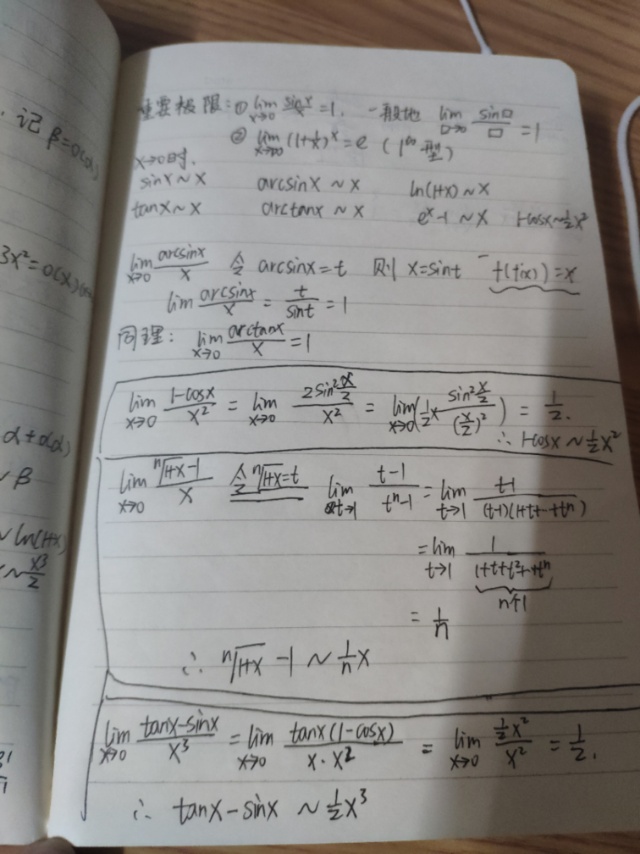 重要极限: ① lim x→0 sinx/x = 1. 一般地 lim □→0 sin□/□ = 1
② lim x→∞ (1+1/x)^x = e (1^∞型)
x→0时.
sinx ~ x arcsinx ~ x ln(1+x) ~ x
tanx ~ x arctanx ~ x e^x-1 ~ x 1-cosx ~ 1/2 x²
lim x→0 arcsinx/x 令 arcsinx = t 则 x = sint
lim arcsinx/x = t/sint = 1
同理: lim x→0 arctanx/x = 1
lim x→0 (1-cosx)/x² = lim x→0 2sin²(x/2)/x² = lim x→0 (1/2 × sin²(x/2)/(x/2)²) = 1/2.
∴ 1-cosx ~ 1/2 x²
lim x→0 (ⁿ√(1+x) -1)/x 令 ⁿ√(1+x) = t lim t→1 (t-1)/(tⁿ-1) = lim t→1 (t-1)/((t-1)(1+t+…+tⁿ))
= lim t→1 1/(1+t+t²+…+tⁿ)
n+1
= 1/n
∴ ⁿ√(1+x) -1 ~ 1/n x
lim x→0 (tanx-sinx)/x³ = lim x→0 tanx(1-cosx)/(x·x²) = lim x→0 (1/2 x²)/x² = 1/2.
∴ tanx-sinx ~ 1/2 x³
记 β=o(α)
3x²=o(x)
α+o(α)
~ β
~ ln(1+x)
~ x³/2